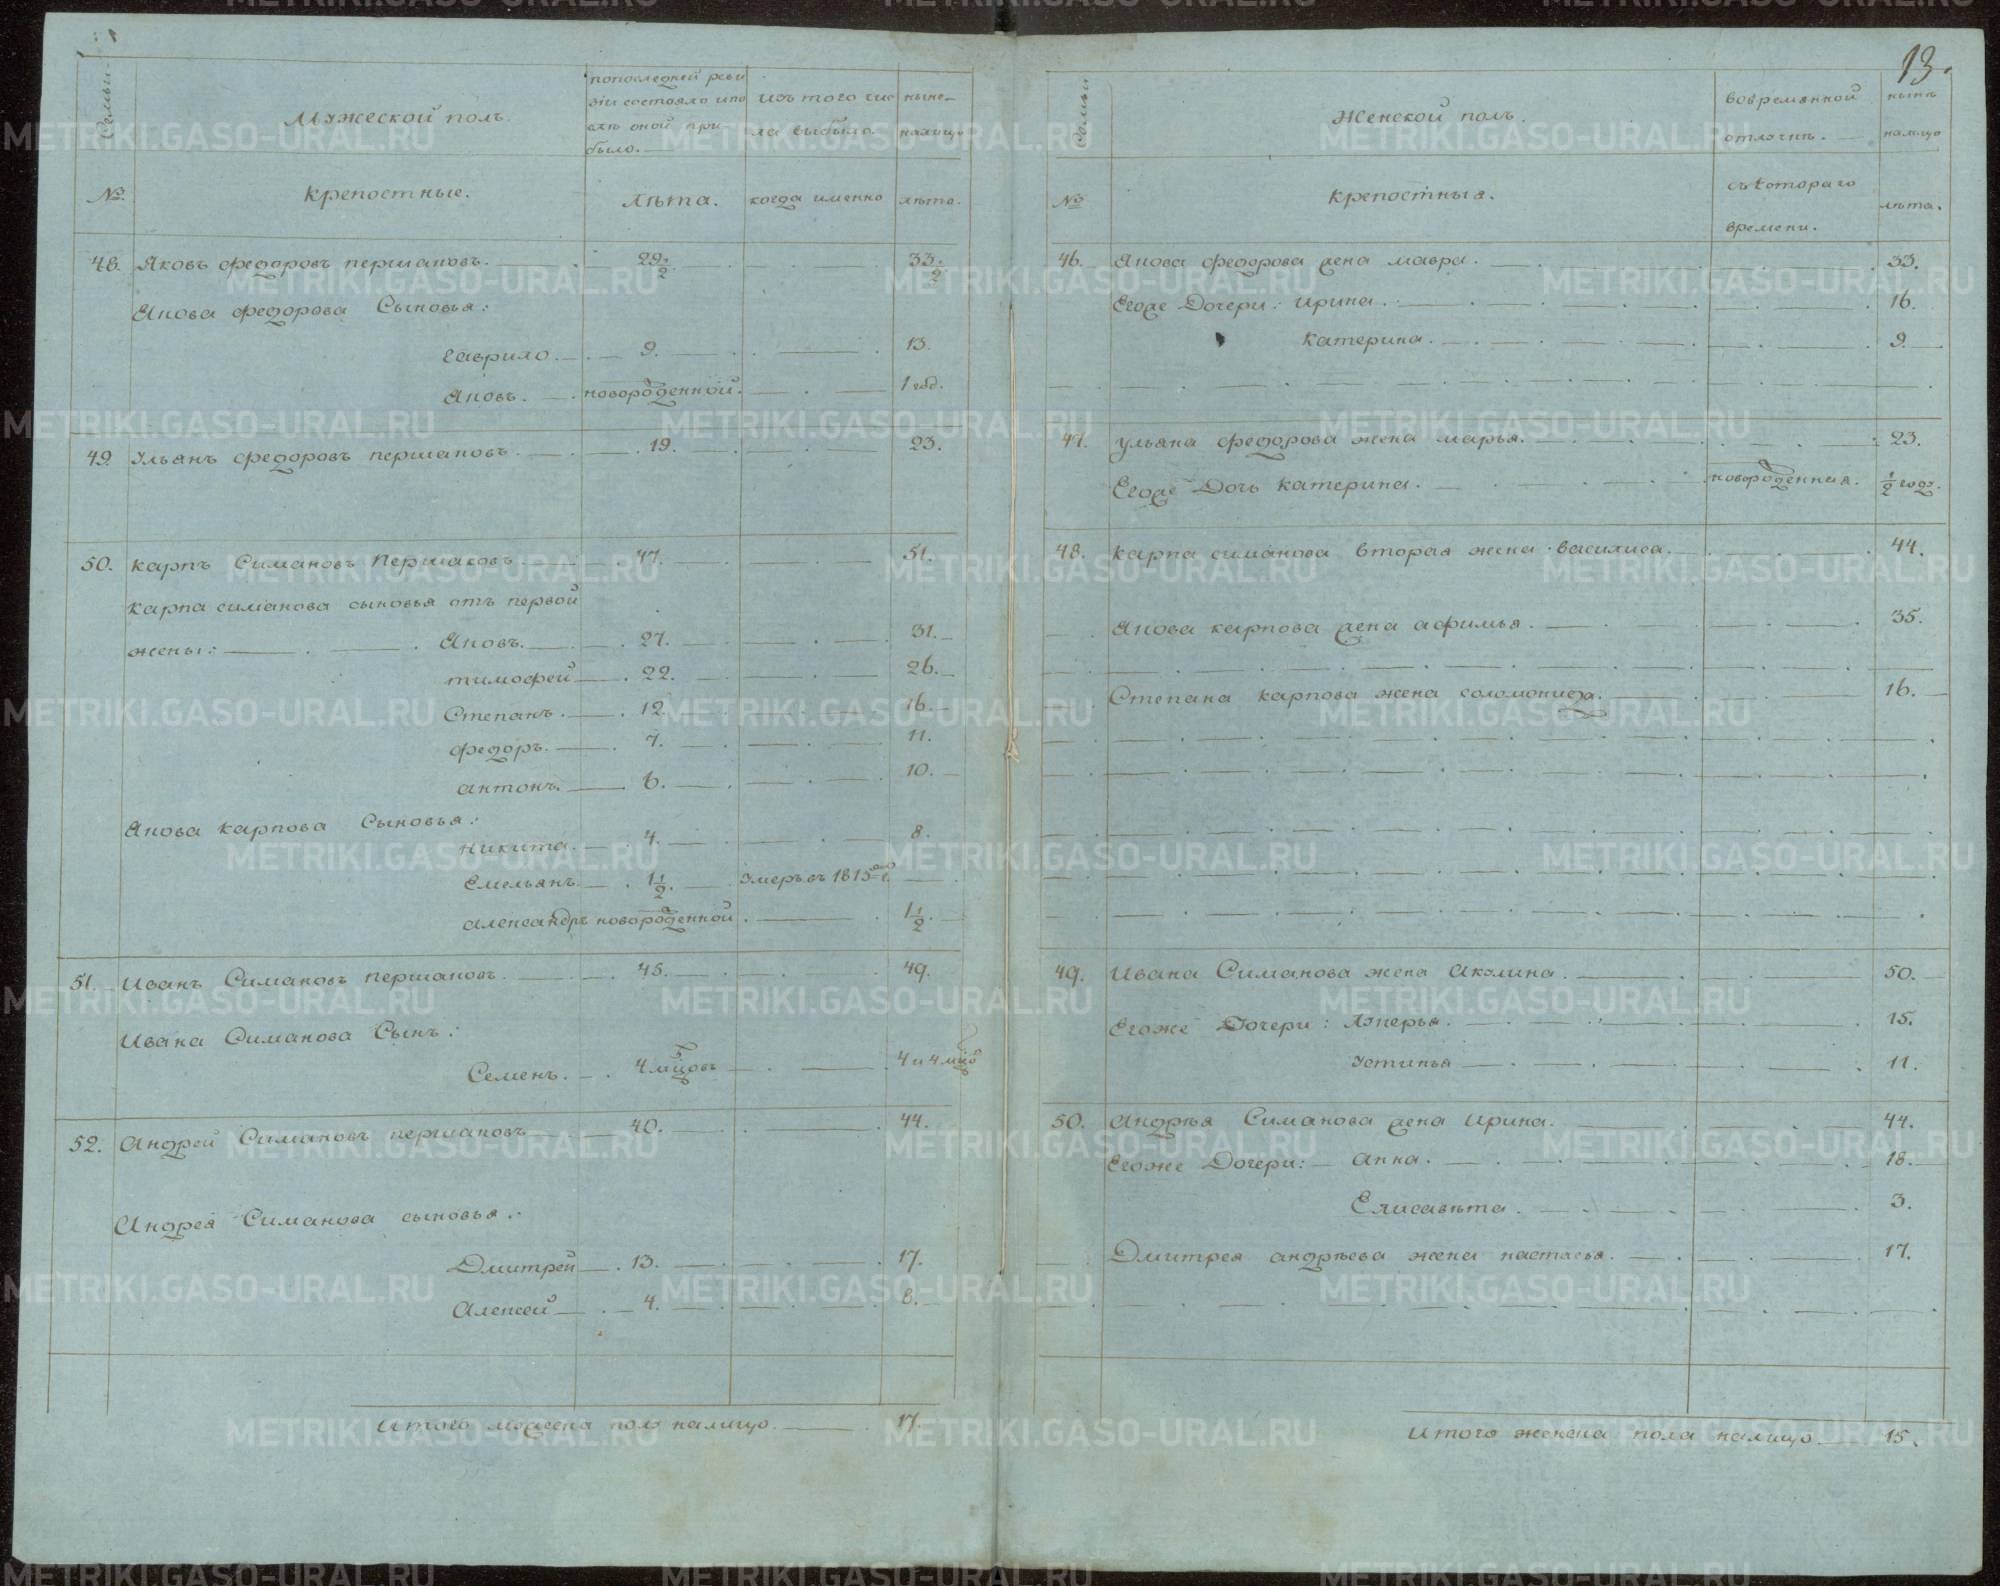 13.
Семьи
Мужеской полъ
попоследней реви
зіи состояло ипо
слѣ оной при-
было.
изъ того чис
ла выбыло
ныне-
налицо
№
крепостные.
лѣта.
когда именно
лѣта.
48. Яковъ федоровъ першаковъ. 29 1/2 33 1/2
Якова федорова Сыновья:
гаврило. 9. 13.
Яковъ. новорожденной. 1 год.
49. Ульянъ федоровъ першаковъ. 19. 23.
50. карпъ Симановъ Першаковъ. 47. 51.
карпа симанова сыновья отъ первой
жены: Яковъ. 27. 31.
тимофей 22. 26.
Степанъ. 12. 16.
федоръ. 7. 11.
антонъ. 6. 10.
Якова карпова Сыновья:
никита. 4. 8.
Емельянъ 1 1/2. умеръ въ 1815 годе
александръ новорожденной. 1 1/2.
51. Иванъ Симановъ першаковъ. 45. 49.
Ивана Симанова Сынъ:
Семенъ. 4 мцовъ 4 и 4 мцов
52. Андрей Симановъ першаковъ 40. 44.
Андрея Симанова сыновья:
Дмитрей 13. 17.
Алексей 4. 8.
Итого мужеска полу налицо 17.
Семьи
Женской полъ.
вовременной
отлучкѣ.
нынѣ
налицо
№
крепостныя.
съ котораго
времени.
лѣта.
46. Якова федорова жена мавра. 33.
Егоже Дочери: ирина. 16.
катерина. 9.
47. ульяна федорова жена марья. 23.
Егоже Дочь катерина. новорожденная. 1/2 года.
48. карпа симанова вторая жена василиса. 44.
Якова карпова жена афимья. 35.
Степана карпова жена соломонида. 16.
49. Ивана Симанова жена Акулина. 50.
Егоже Дочери: Лукерья. 15.
Устинья 11.
50. Андрѣя Симанова жена ирина. 44.
Егоже Дочери: анна. 18.
Елисавѣта. 3.
Дмитрея андрѣева жена настасья. 17.
Итого женска пола налицо 15.
METRIKI.GASO-URAL.RU